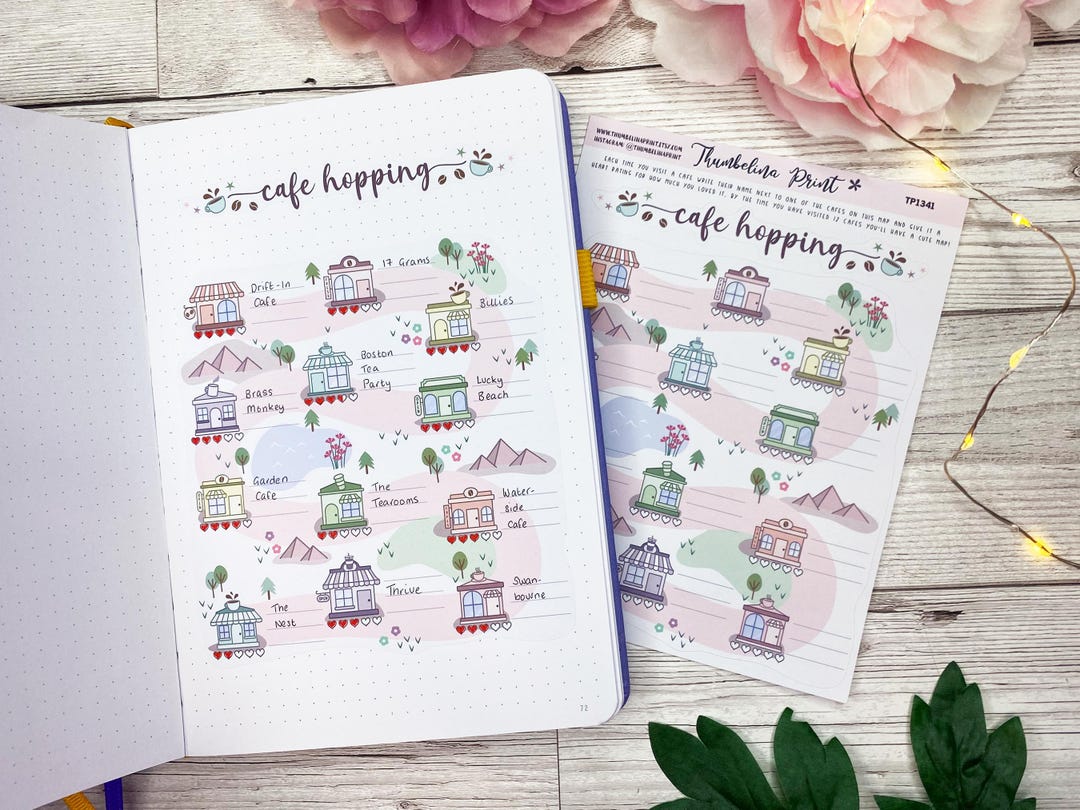 cafe hopping
17 Grams
Drift-In
Cafe
Billies
Boston
Tea
Party
Brass
Monkey
Lucky
Beach
Garden
Cafe
The
Tearooms
Water-
side
Cafe
The
Nest
Thrive
Swan-
bourne
72
WWW.THUMBELINAPRINT.ETSY.COM
INSTAGRAM: @THUMBELINAPRINT
Thumbelina Print
TP1341
EACH TIME YOU VISIT A CAFE WRITE THEIR NAME NEXT TO ONE OF THE CAFES ON THIS MAP AND GIVE IT A
HEART RATING FOR HOW MUCH YOU LOVED IT. BY THE TIME YOU HAVE VISITED 12 CAFES YOU'LL HAVE A CUTE MAP!
cafe hopping